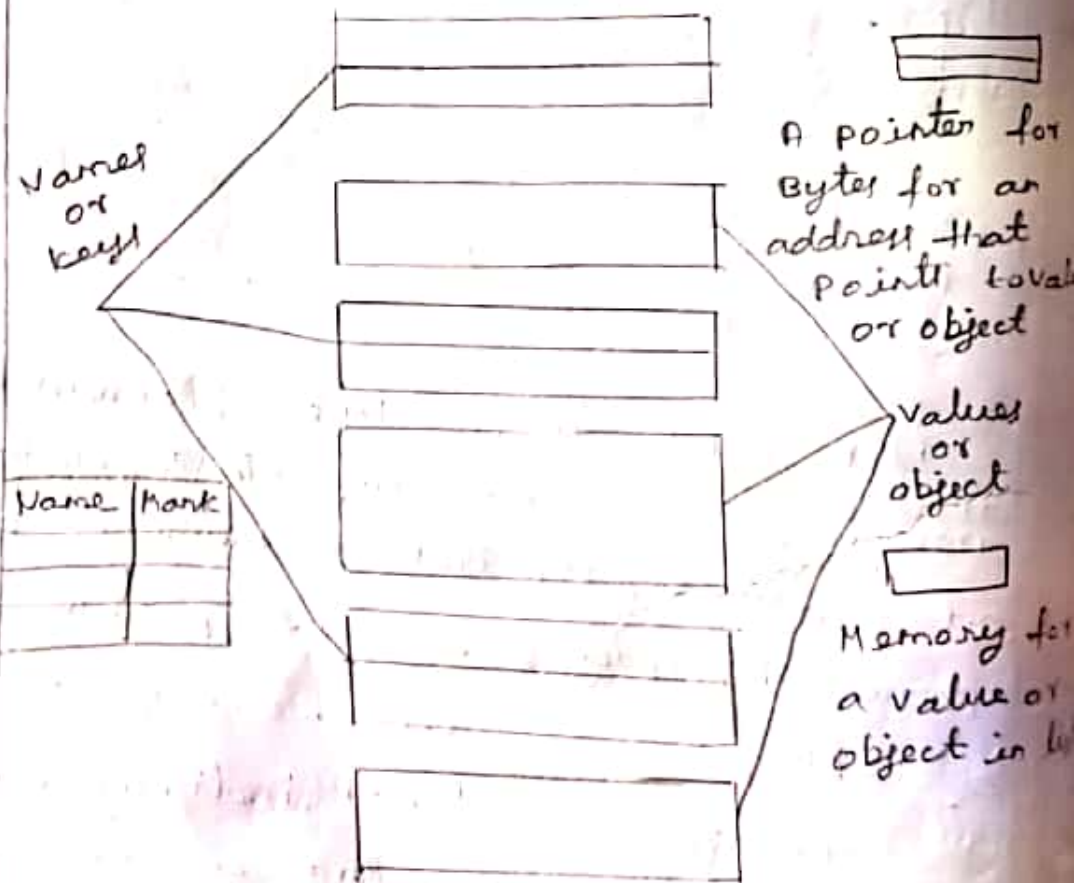 Names
or
keys
Name Mark
A pointer for
Bytes for an
address that
Points to
or object
Values
or
object
Memory for
a value or
object in